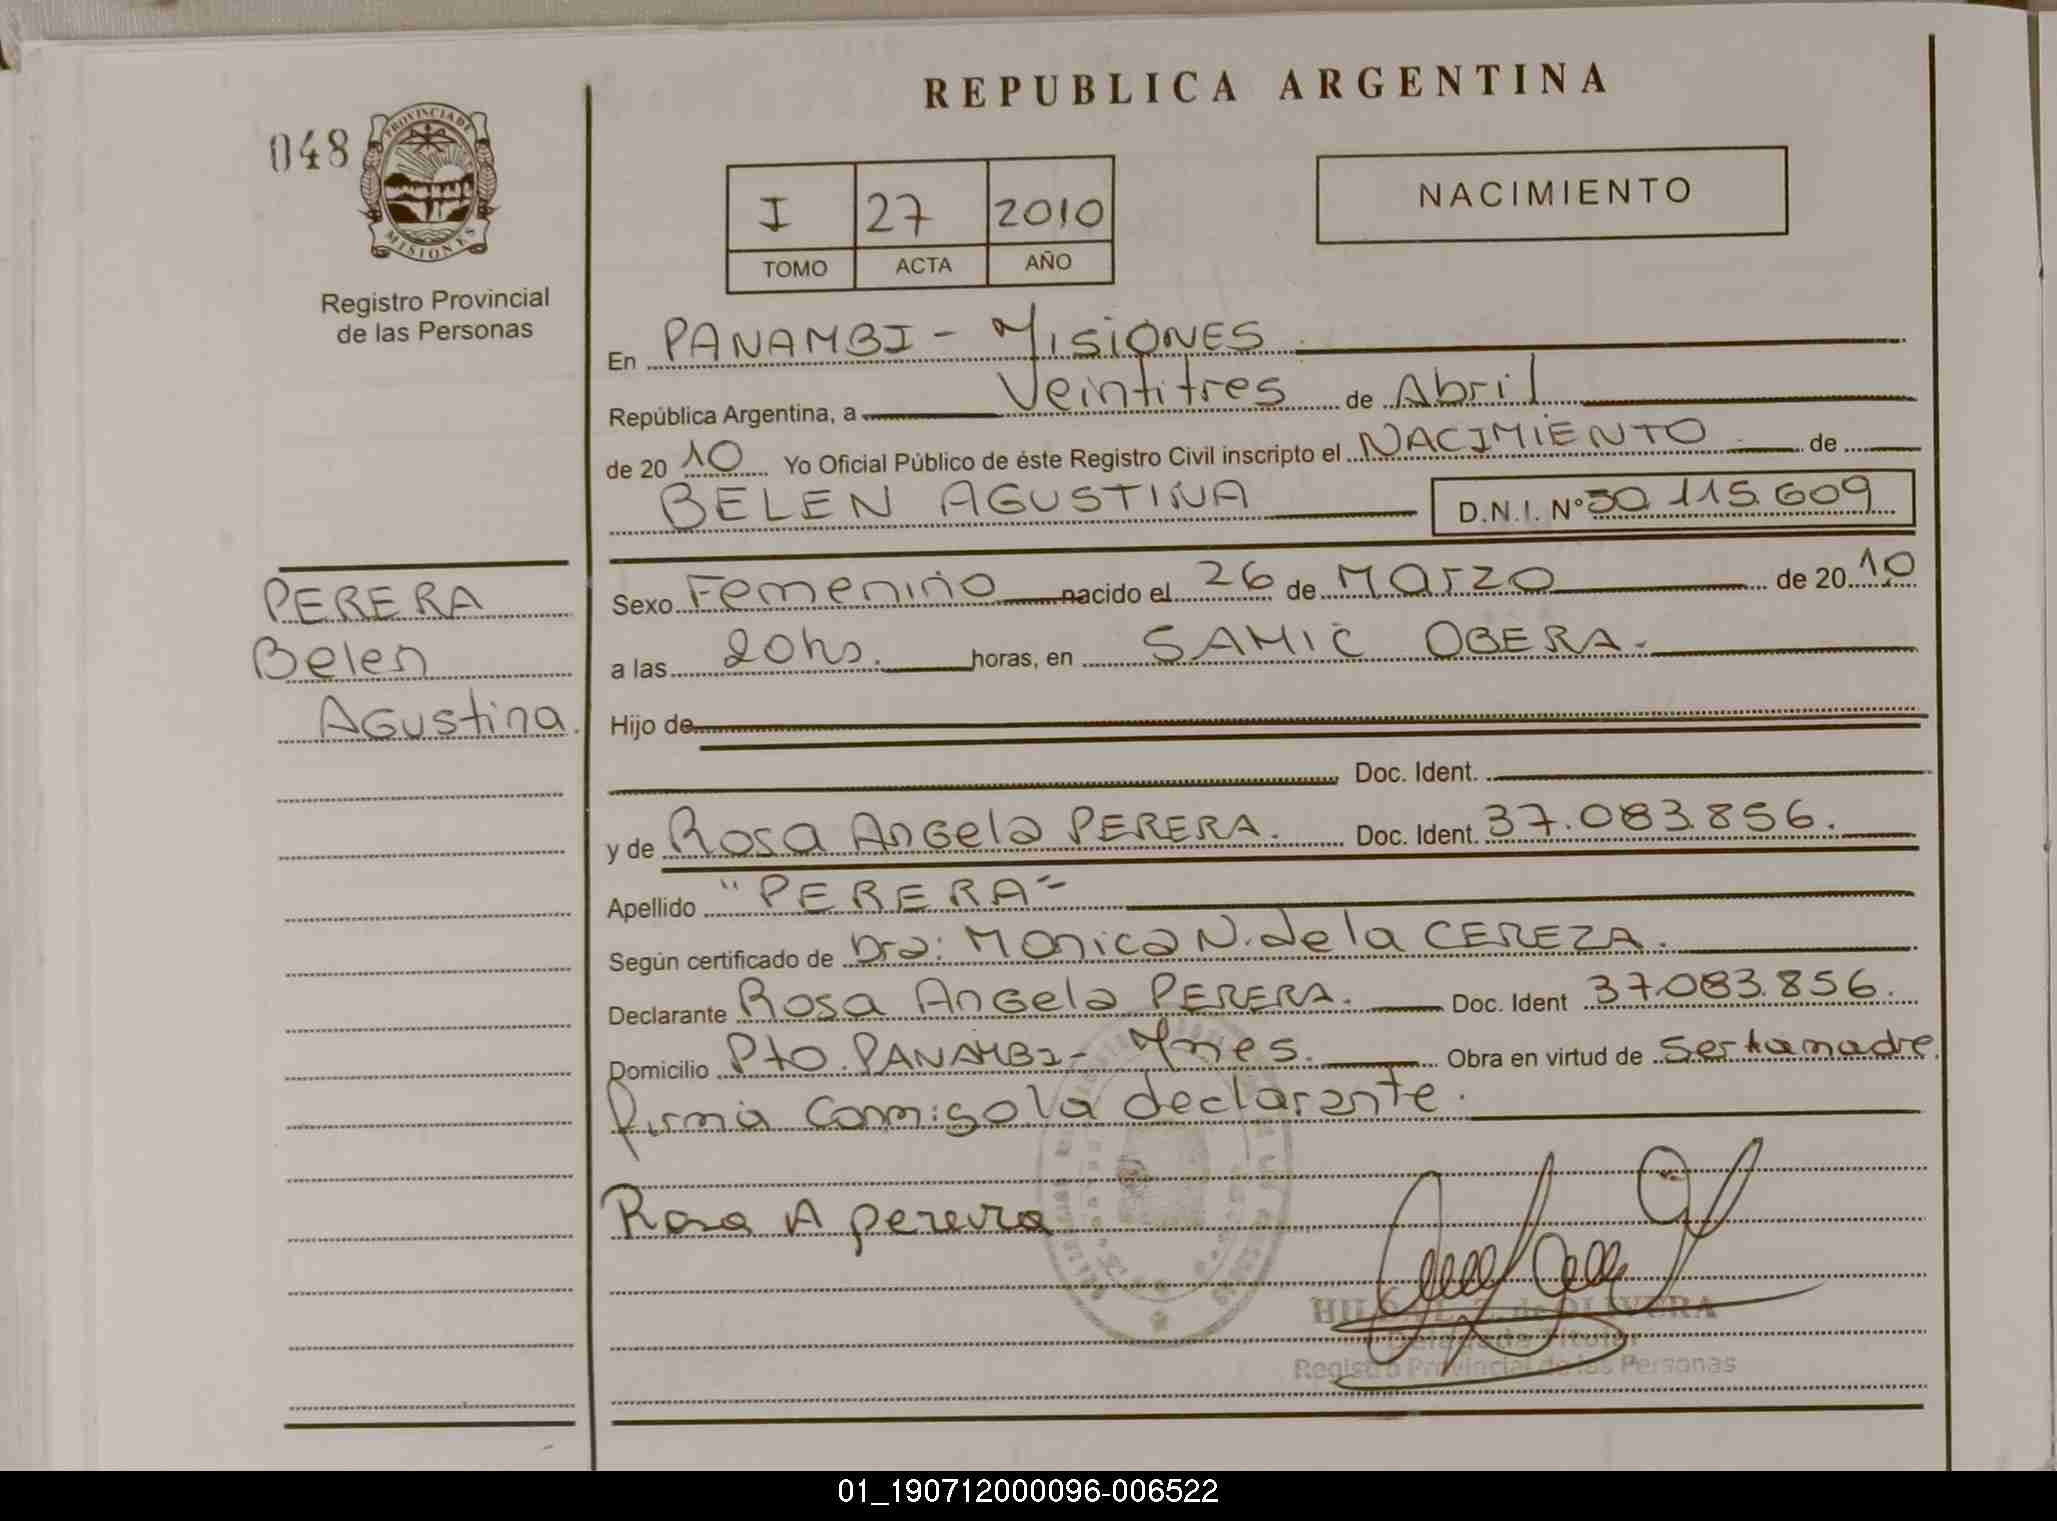 REPUBLICA ARGENTINA
048
PROVINCIA DE
MISIONES
Registro Provincial
de las Personas
NACIMIENTO
I 27 2010
TOMO ACTA AÑO
En PANAMBI - Misiones
República Argentina, a Veintitres de Abril
de 20 10 Yo Oficial Público de éste Registro Civil inscripto el NACIMIENTO de
BELEN AGUSTINA D.N.I. Nº 50.115.609
PERERA
Belen
Agustina.
Sexo Femenino nacido el 26 de Marzo de 20 10
a las 20hs. horas, en SAMIC OBERA.
Hijo de
Doc. Ident.
y de Rosa Angela PERERA. Doc. Ident. 37.083.856.
Apellido "PERERA"
Según certificado de Dra: Monica N. de la CEREZA.
Declarante Rosa Angela PERERA. Doc. Ident 37.083.856.
Domicilio Pto. PANAMBI - Mnes. Obra en virtud de Ser la madre.
firma conmigo la declarante.
Rosa A perera
de OLIVERA
Delegada Titular
Registro Provincial de las Personas
01_190712000096-006522